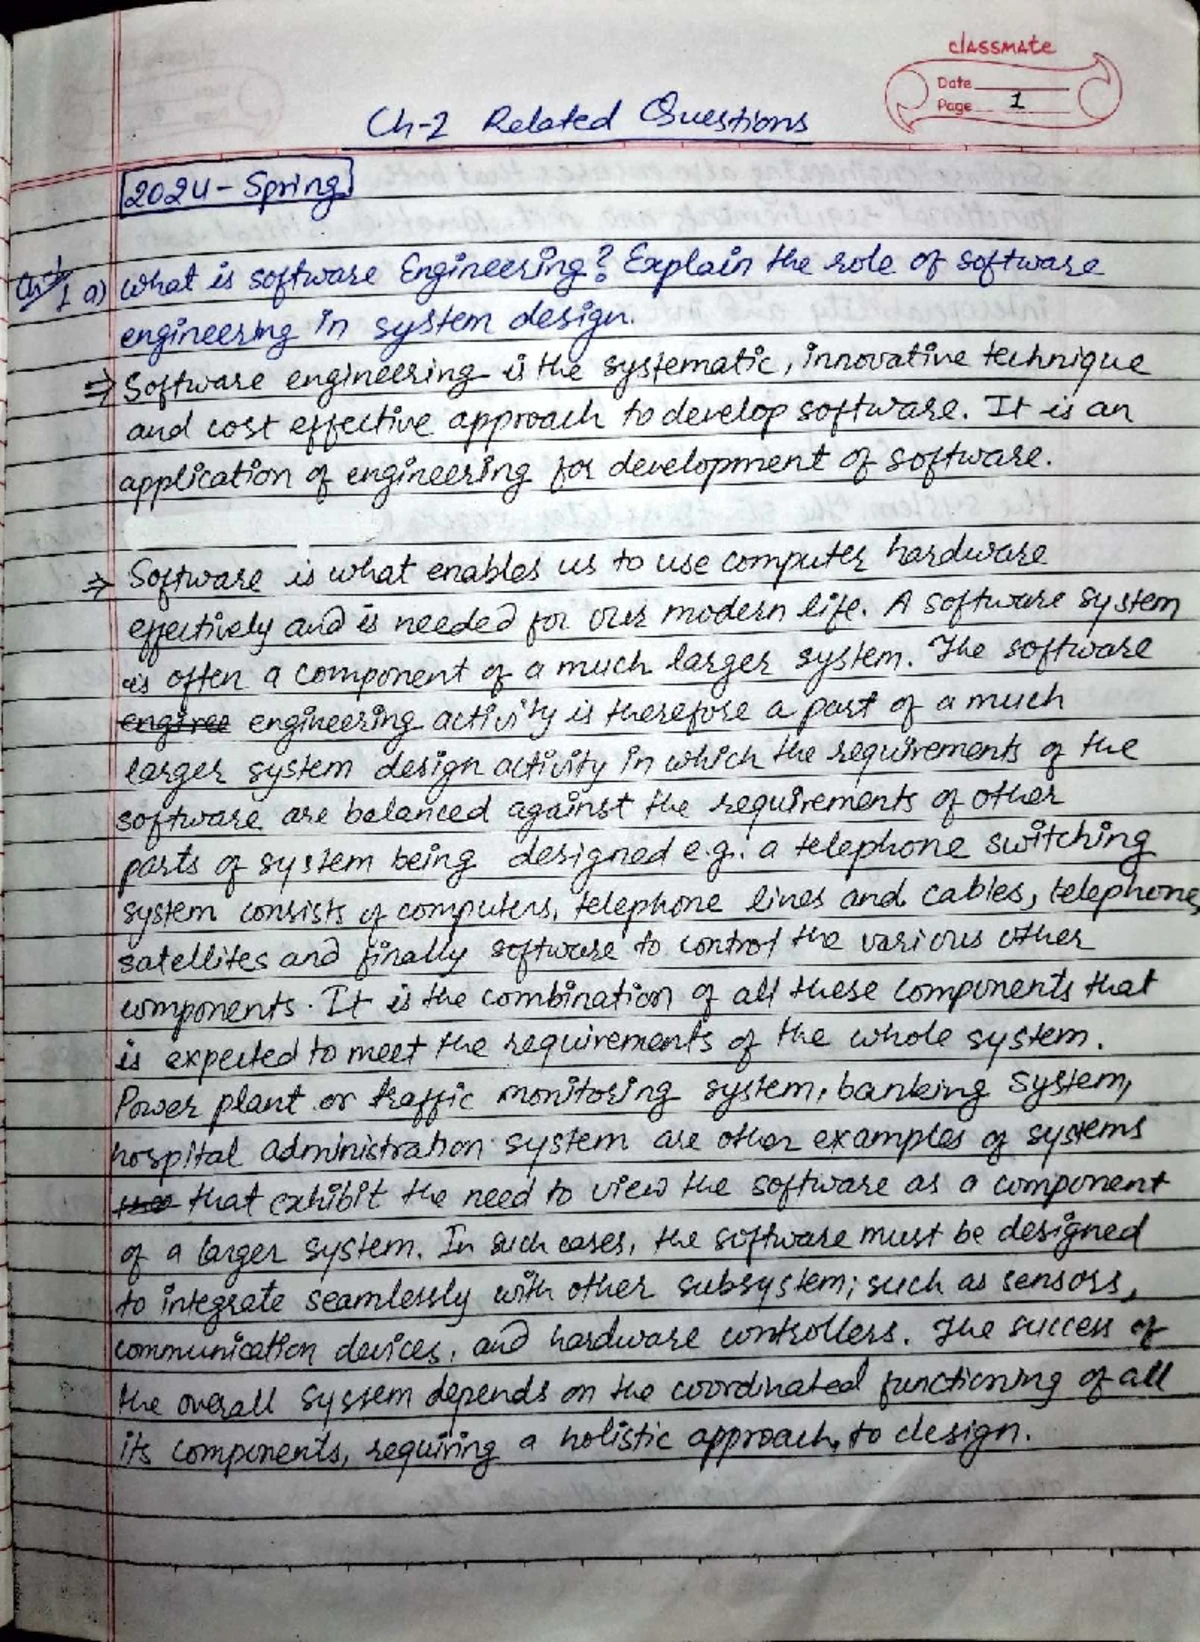 classmate
Date
Page 1
Ch-2 Related Questions
2024 - Spring
1 a) What is software Engineering? Explain the role of software
engineering in system design.
⇒ Software engineering is the systematic, innovative technique
and cost effective approach to develop software. It is an
application of engineering for development of software.
⇒ Software is what enables us to use computer hardware
effectively and is needed for our modern life. A software system
is often a component of a much larger system. The software
engineering activity is therefore a part of a much
larger system design activity in which the requirements of the
software are balanced against the requirements of other
parts of system being designed e.g.: a telephone switching
system consists of computers, telephone lines and cables, telephone,
satellites and finally software to control the various other
components. It is the combination of all these components that
is expected to meet the requirements of the whole system.
Power plant or traffic monitoring system, banking system,
hospital administration system are other examples of systems
that exhibit the need to view the software as a component
of a larger system. In such cases, the software must be designed
to integrate seamlessly with other subsystem; such as sensors,
communication devices, and hardware controllers. The success of
the overall system depends on the coordinated functioning of all
its components, requiring a holistic approach, to design.